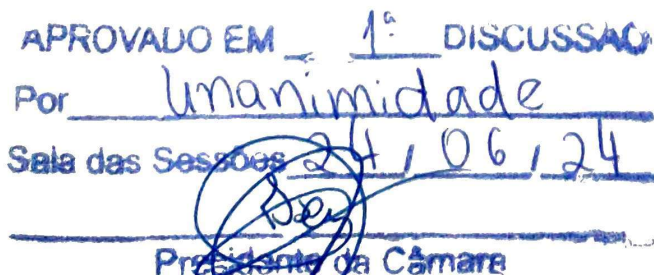 APROVADO EM 1ª DISCUSSÃO
Por Unanimidade
Sala das Sessões 24, 06, 24
Presidente da Câmara